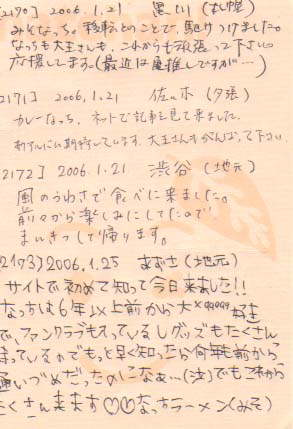 [2170] 2006.1.21 黒川 (札幌)
みそなっち。移転とのことで、駆けつけました。
なっちも大王さんも、これからも頑張って下さい。
応援してます。(最近は 推しですが…)
2171] 2006.1.21 佐々木 (夕張)
カレーなっち。ネットで記事を見て来ました。
期待しています。大王さんもがんばって下さい。
2172] 2006.1.21 渋谷 (地元)
風のうわさで食べに来ました。
前々から楽しみにしてたので
まんきつして帰ります。
2173) 2006.1.25 まずさ (地元)
サイトで初めて知って今日来ました!!
なっちは6年以上前から大×99999好き
で、ファンクラブも入っているしグッズもたくさん
持っているのでもっと早く知ったら何年も前から
通いづめだったのになぁ…(泣)でもこれから
たくさん来ます♡♡なっちラーメン(みそ)